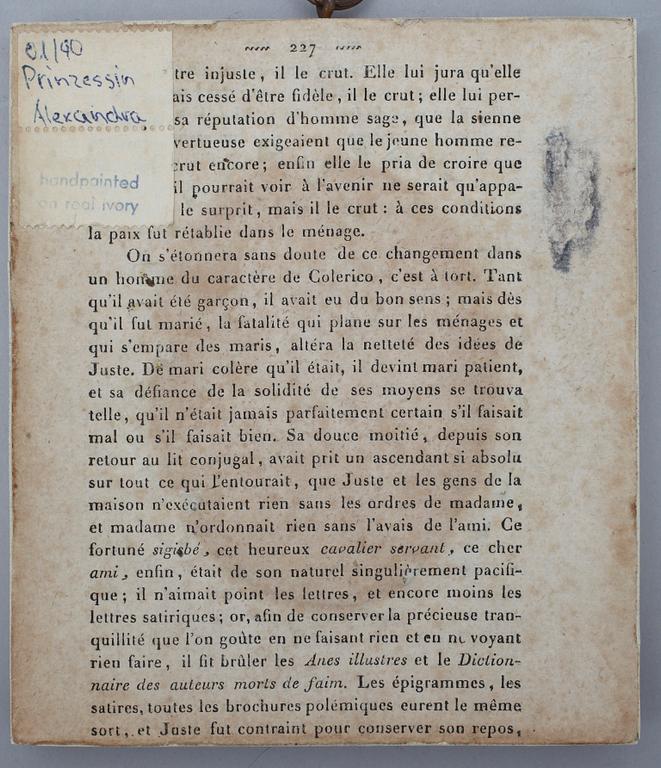 01/90
Prinzessin
Alexandra
handpainted
on real ivory
227
tre injuste, il le crut. Elle lui jura qu'elle
ais cessé d'être fidèle, il le crut; elle lui per-
sa réputation d'homme sage, que la sienne
vertueuse exigeaient que le jeune homme re-
crut encore; enfin elle le pria de croire que
il pourrait voir à l'avenir ne serait qu'appa-
le surprit, mais il le crut : à ces conditions
la paix fut rétablie dans le ménage.
On s'étonnera sans doute de ce changement dans
un homme du caractère de Colerico, c'est à tort. Tant
qu'il avait été garçon, il avait eu du bon sens; mais dès
qu'il fut marié, la fatalité qui plane sur les ménages et
qui s'empare des maris, altéra la netteté des idées de
Juste. De mari colère qu'il était, il devint mari patient,
et sa défiance de la solidité de ses moyens se trouva
telle, qu'il n'était jamais parfaitement certain s'il faisait
mal ou s'il faisait bien. Sa douce moitié, depuis son
retour au lit conjugal, avait prit un ascendant si absolu
sur tout ce qui l'entourait, que Juste et les gens de la
maison n'exécutaient rien sans les ordres de madame,
et madame n'ordonnait rien sans l'avais de l'ami. Ce
fortuné sigisbé, cet heureux cavalier servant, ce cher
ami, enfin, était de son naturel singulièrement pacifi-
que; il n'aimait point les lettres, et encore moins les
lettres satiriques; or, afin de conserver la précieuse tran-
quillité que l'on goûte en ne faisant rien et en ne voyant
rien faire, il fit brûler les Anes illustres et le Diction-
naire des auteurs morts de faim. Les épigrammes, les
satires, toutes les brochures polémiques eurent le même
sort, et Juste fut contraint pour conserver son repos,